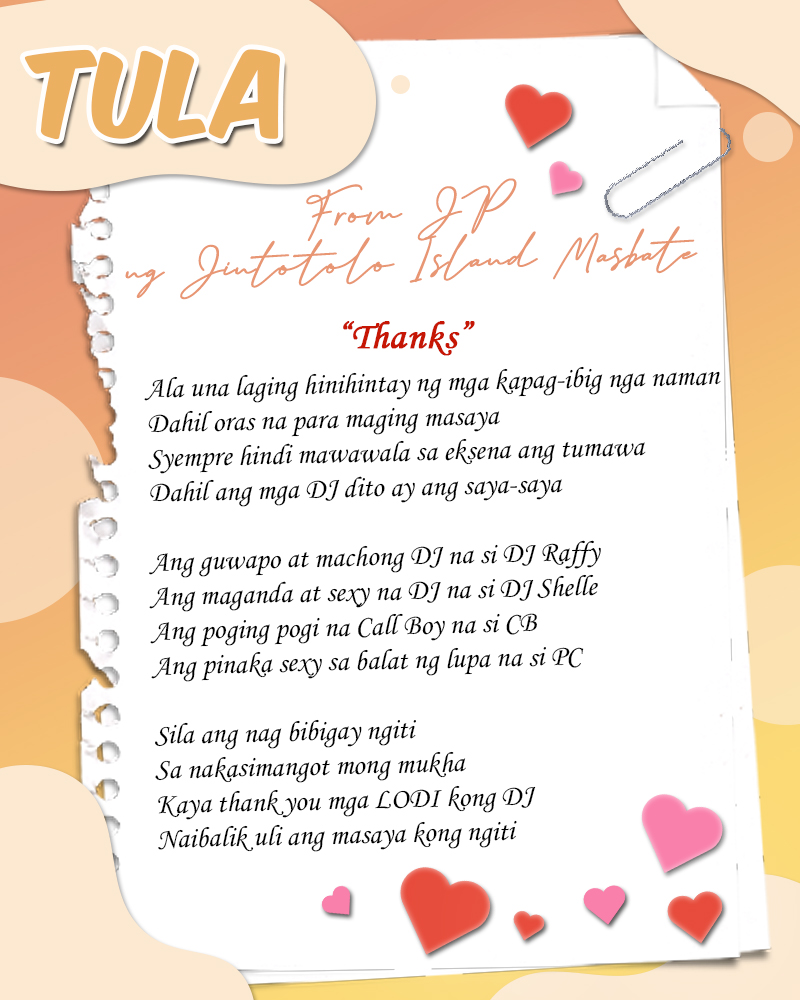 TULA
From JP
ng Jintotolo Island Masbate
“Thanks”
Ala una laging hinihintay ng mga kapag-ibig nga naman
Dahil oras na para maging masaya
Syempre hindi mawawala sa eksena ang tumawa
Dahil ang mga DJ dito ay ang saya-saya
Ang guwapo at machong DJ na si DJ Raffy
Ang maganda at sexy na DJ na si DJ Shelle
Ang poging pogi na Call Boy na si CB
Ang pinaka sexy sa balat ng lupa na si PC
Sila ang nag bibigay ngiti
Sa nakasimangot mong mukha
Kaya thank you mga LODI kong DJ
Naibalik uli ang masaya kong ngiti